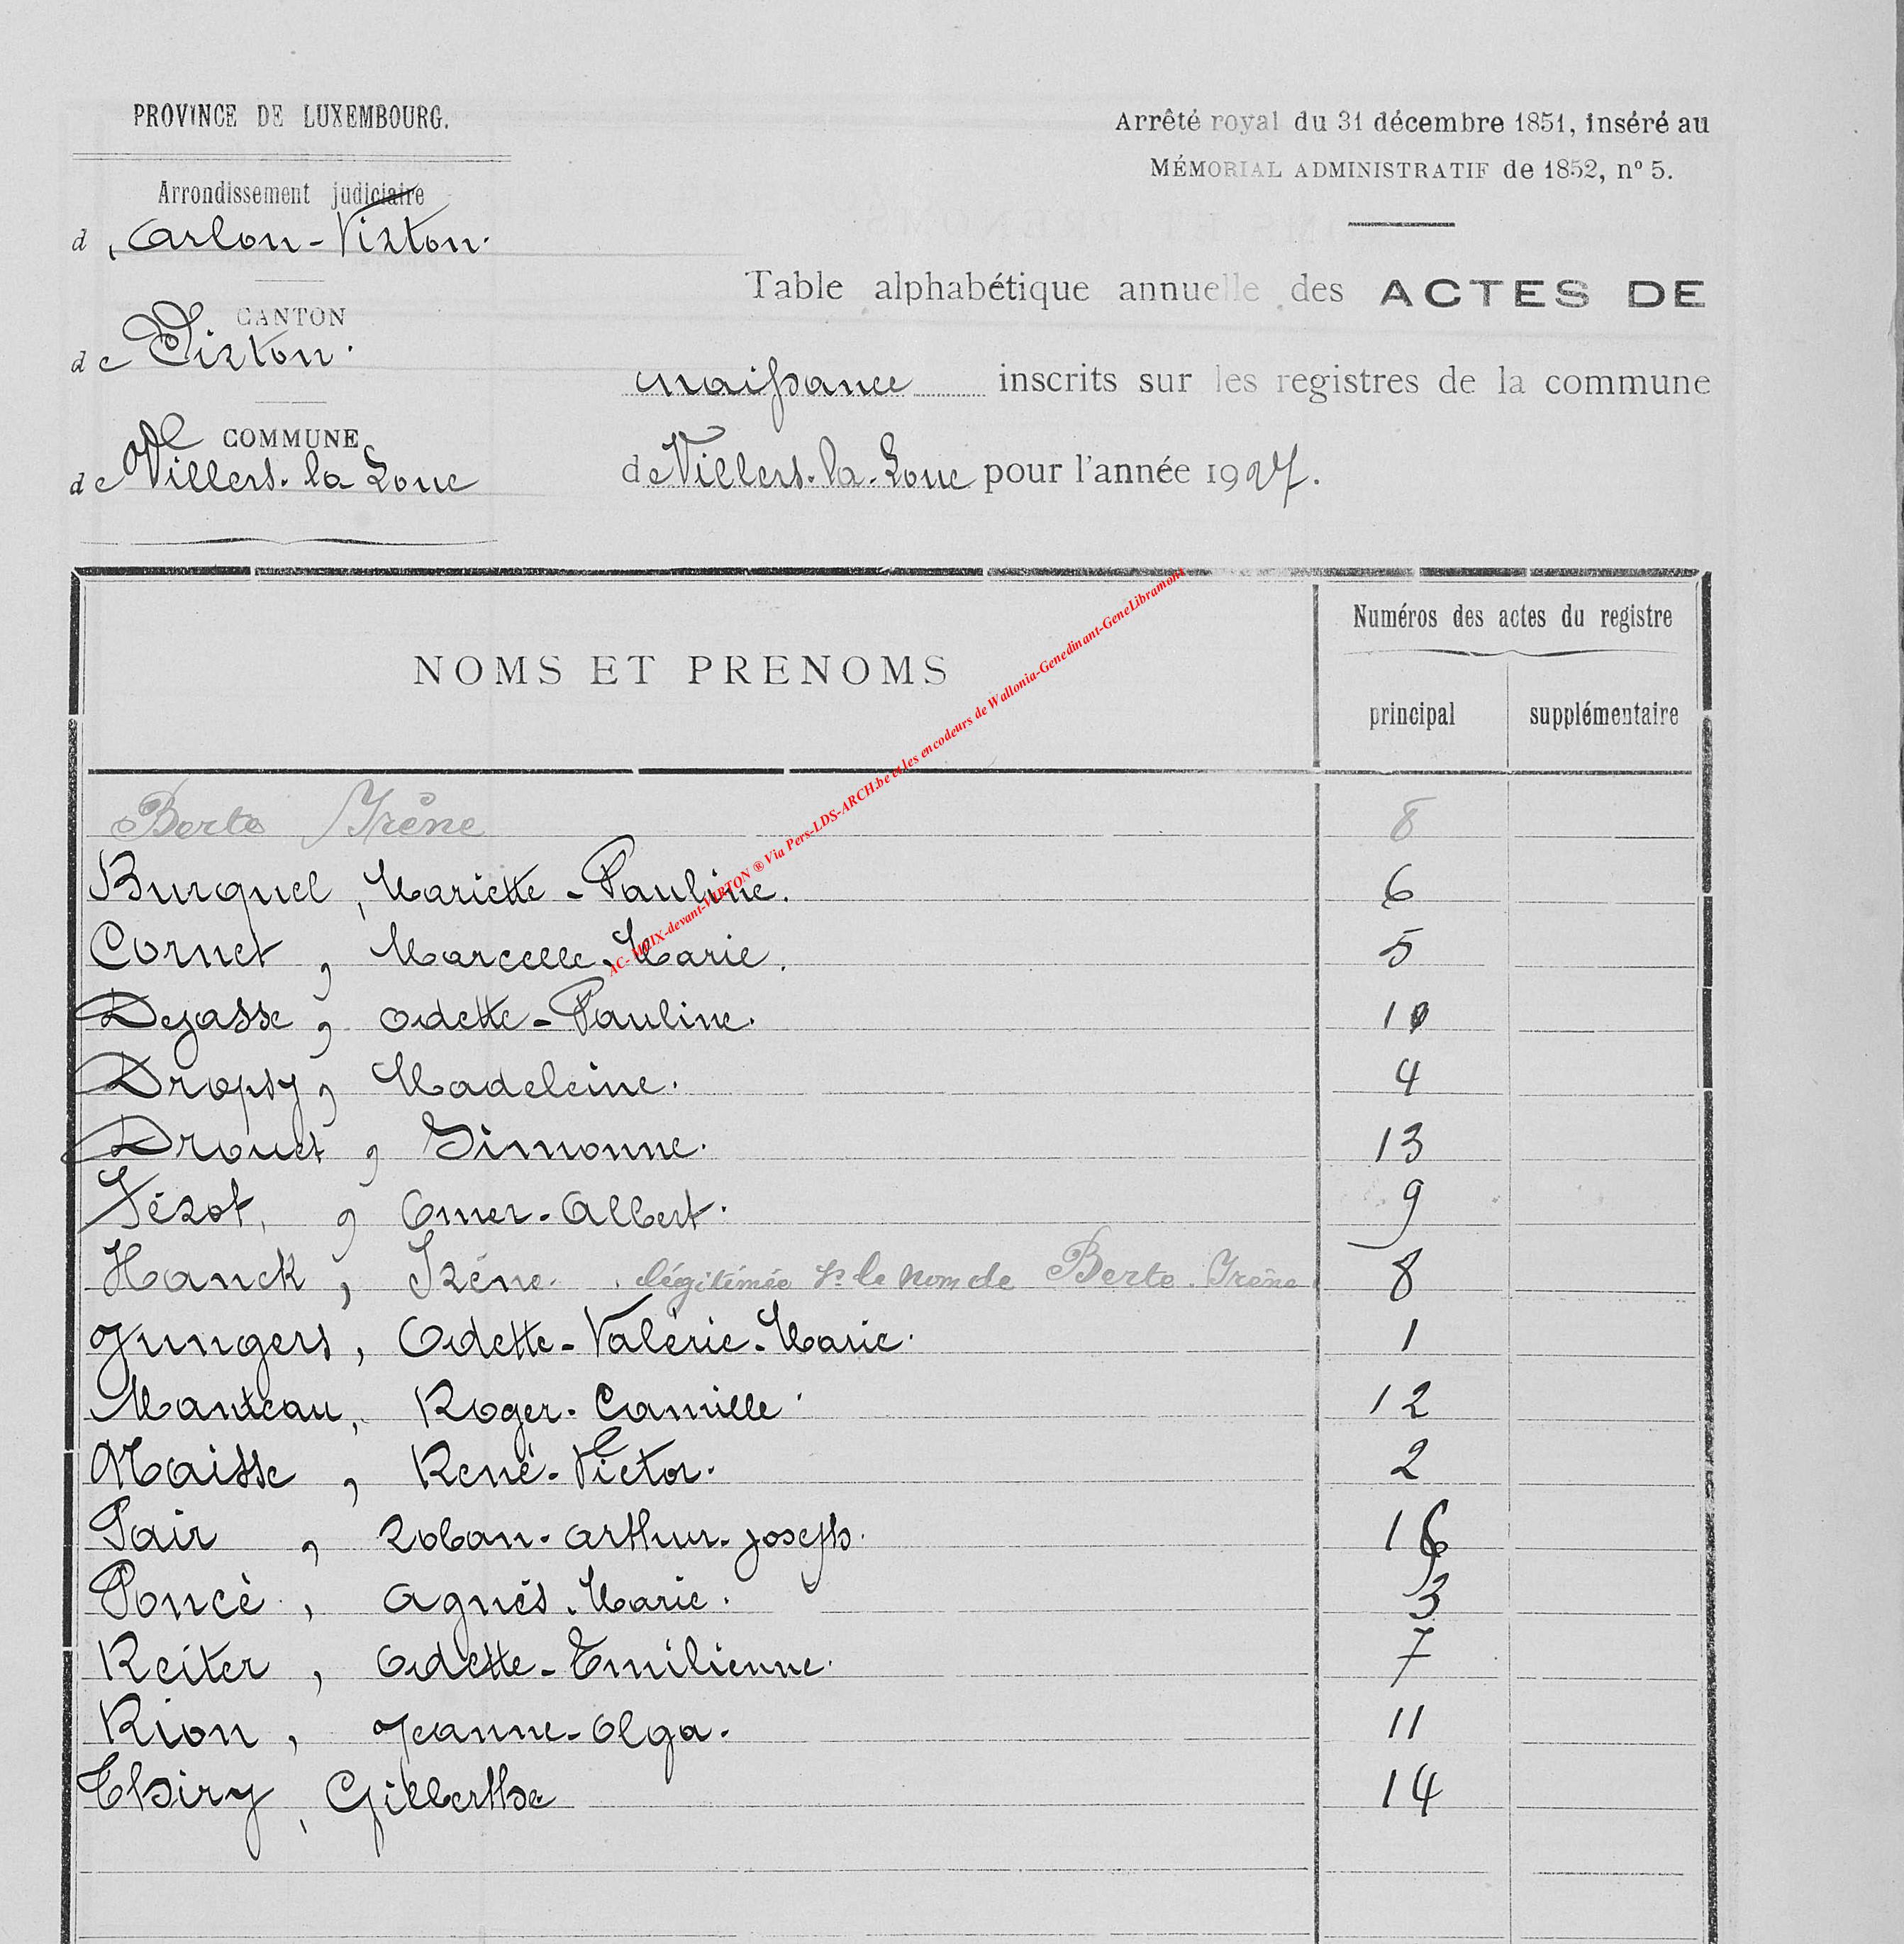 PROVINCE DE LUXEMBOURG.
Arrondissement judiciaire
d'Arlon-Virton.
CANTON
de Virton.
COMMUNE
de Villers-la-Loue
Arrêté royal du 31 décembre 1851, inséré au
MÉMORIAL ADMINISTRATIF de 1852, nº 5.
Table alphabétique annuelle des ACTES DE
naissance inscrits sur les registres de la commune
de Villers-la-Loue pour l'année 1927.
NOMS ET PRENOMS
Numéros des actes du registre
principal supplémentaire
AC- MEIX-devant-VIRTON ® Via Pers-LDS-ARCH.be et les encodeurs de Wallonia-Genedinant-GeneLibramont
Berte Irêne 8
Burquel, Mariette-Pauline. 6
Cornet, Marcelle-Marie. 5
Dejasse, Odette-Pauline. 10
Dropsy, Madeleine. 4
Drouet, Simonne. 13
Fézot, Omer-Albert. 9
Hanck, Iréne. légitimée ss le nom de Berte-Irêne 8
Jungers, Odette-Valérie-Marie. 1
Manteau, Roger-Camille. 12
Naisse, René-Victor. 2
Pair, Arthur-Joseph. 1
Poncé, Agnès-Marie. 3
Reiter, Odette-Emilienne. 7
Rion, Jeanne-Olga. 11
Thiry, Gilberthe 14